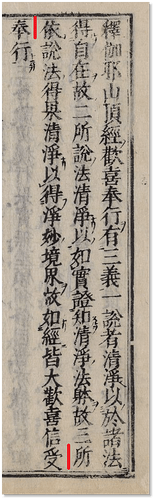 釋伽耶山頂經歡喜奉行有三義一說者清淨以於諸法
得自在故二所說法清淨以如實證知清淨法體故三所
依說法得果清淨以得淨妙境界故如經皆大歡喜信受
奉行